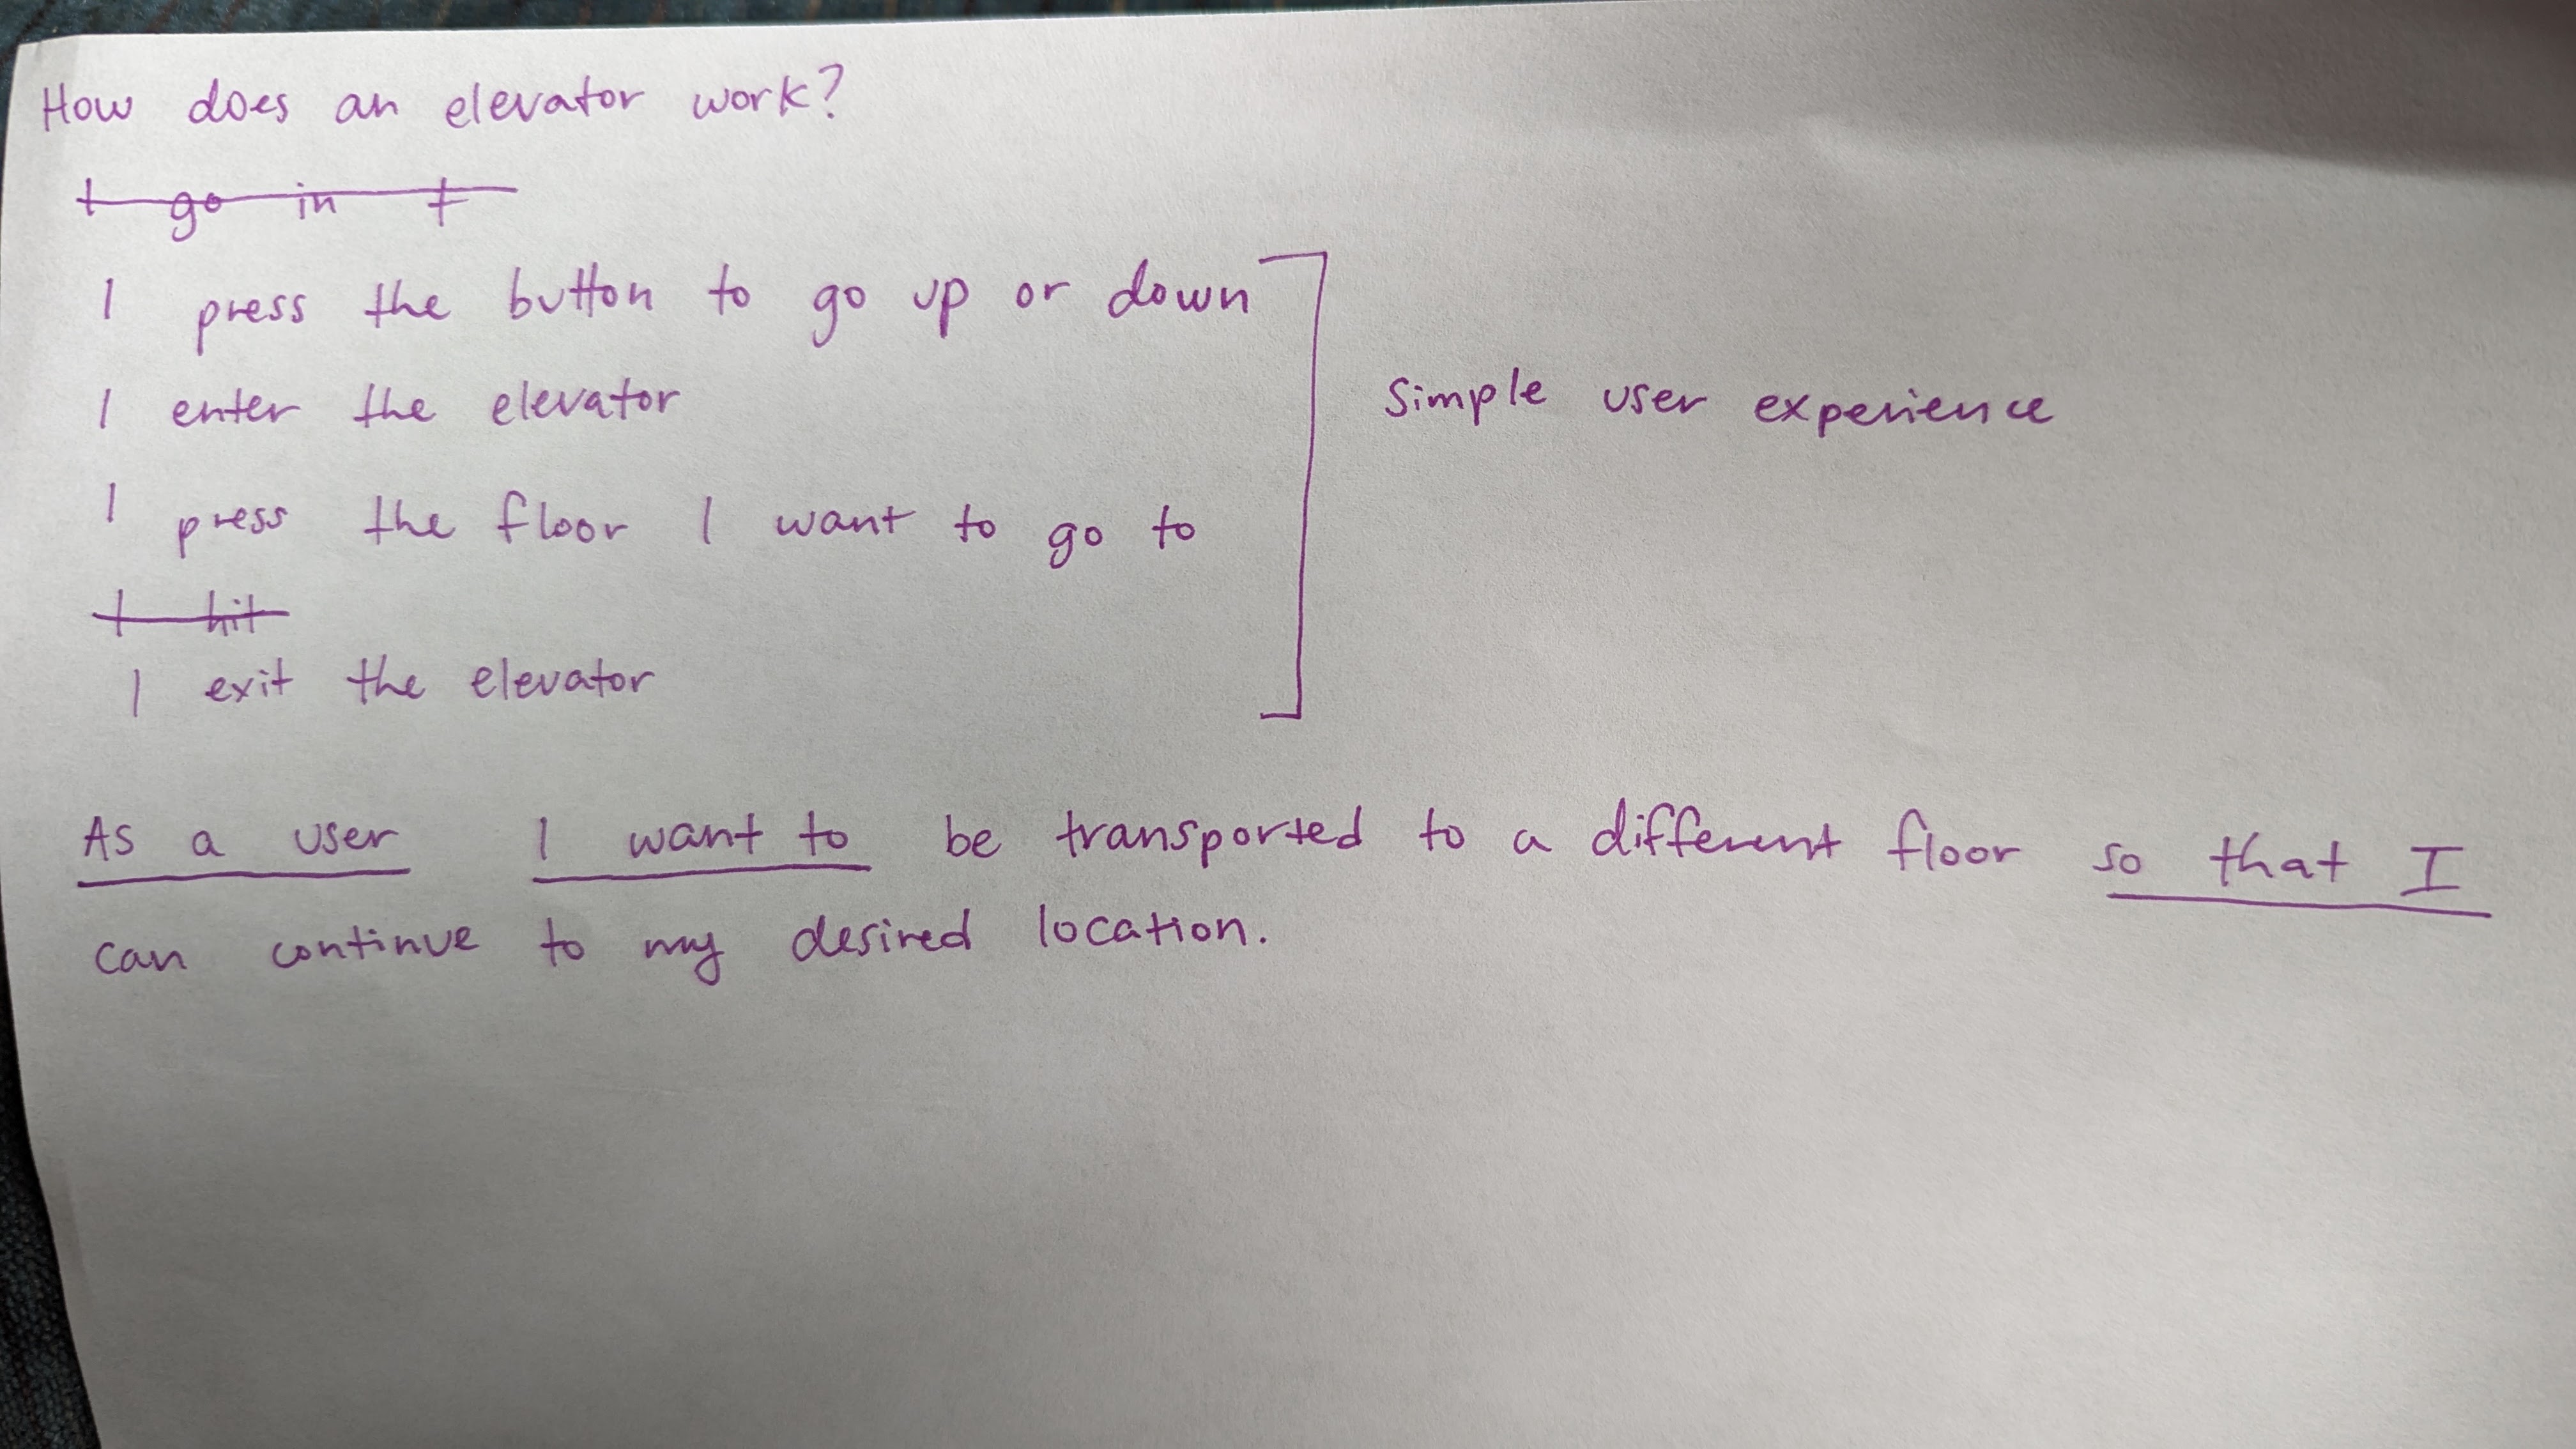 How does an elevator work?
I go in t
I press the button to go up or down
I enter the elevator
Simple user experience
I press the floor I want to go to
I hit
I exit the elevator
As a user I want to be transported to a different floor so that I
can continue to my desired location.